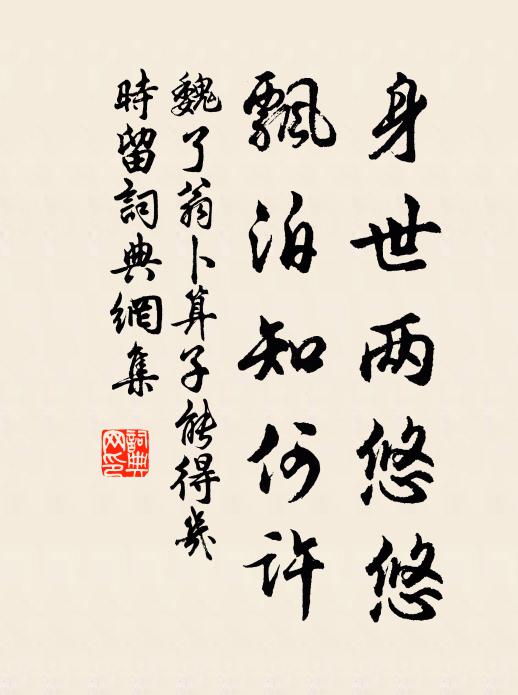 身世两悠悠
飘泊知何许
魏了翁卜算子能得几
时留詞典網集
詞典
网印